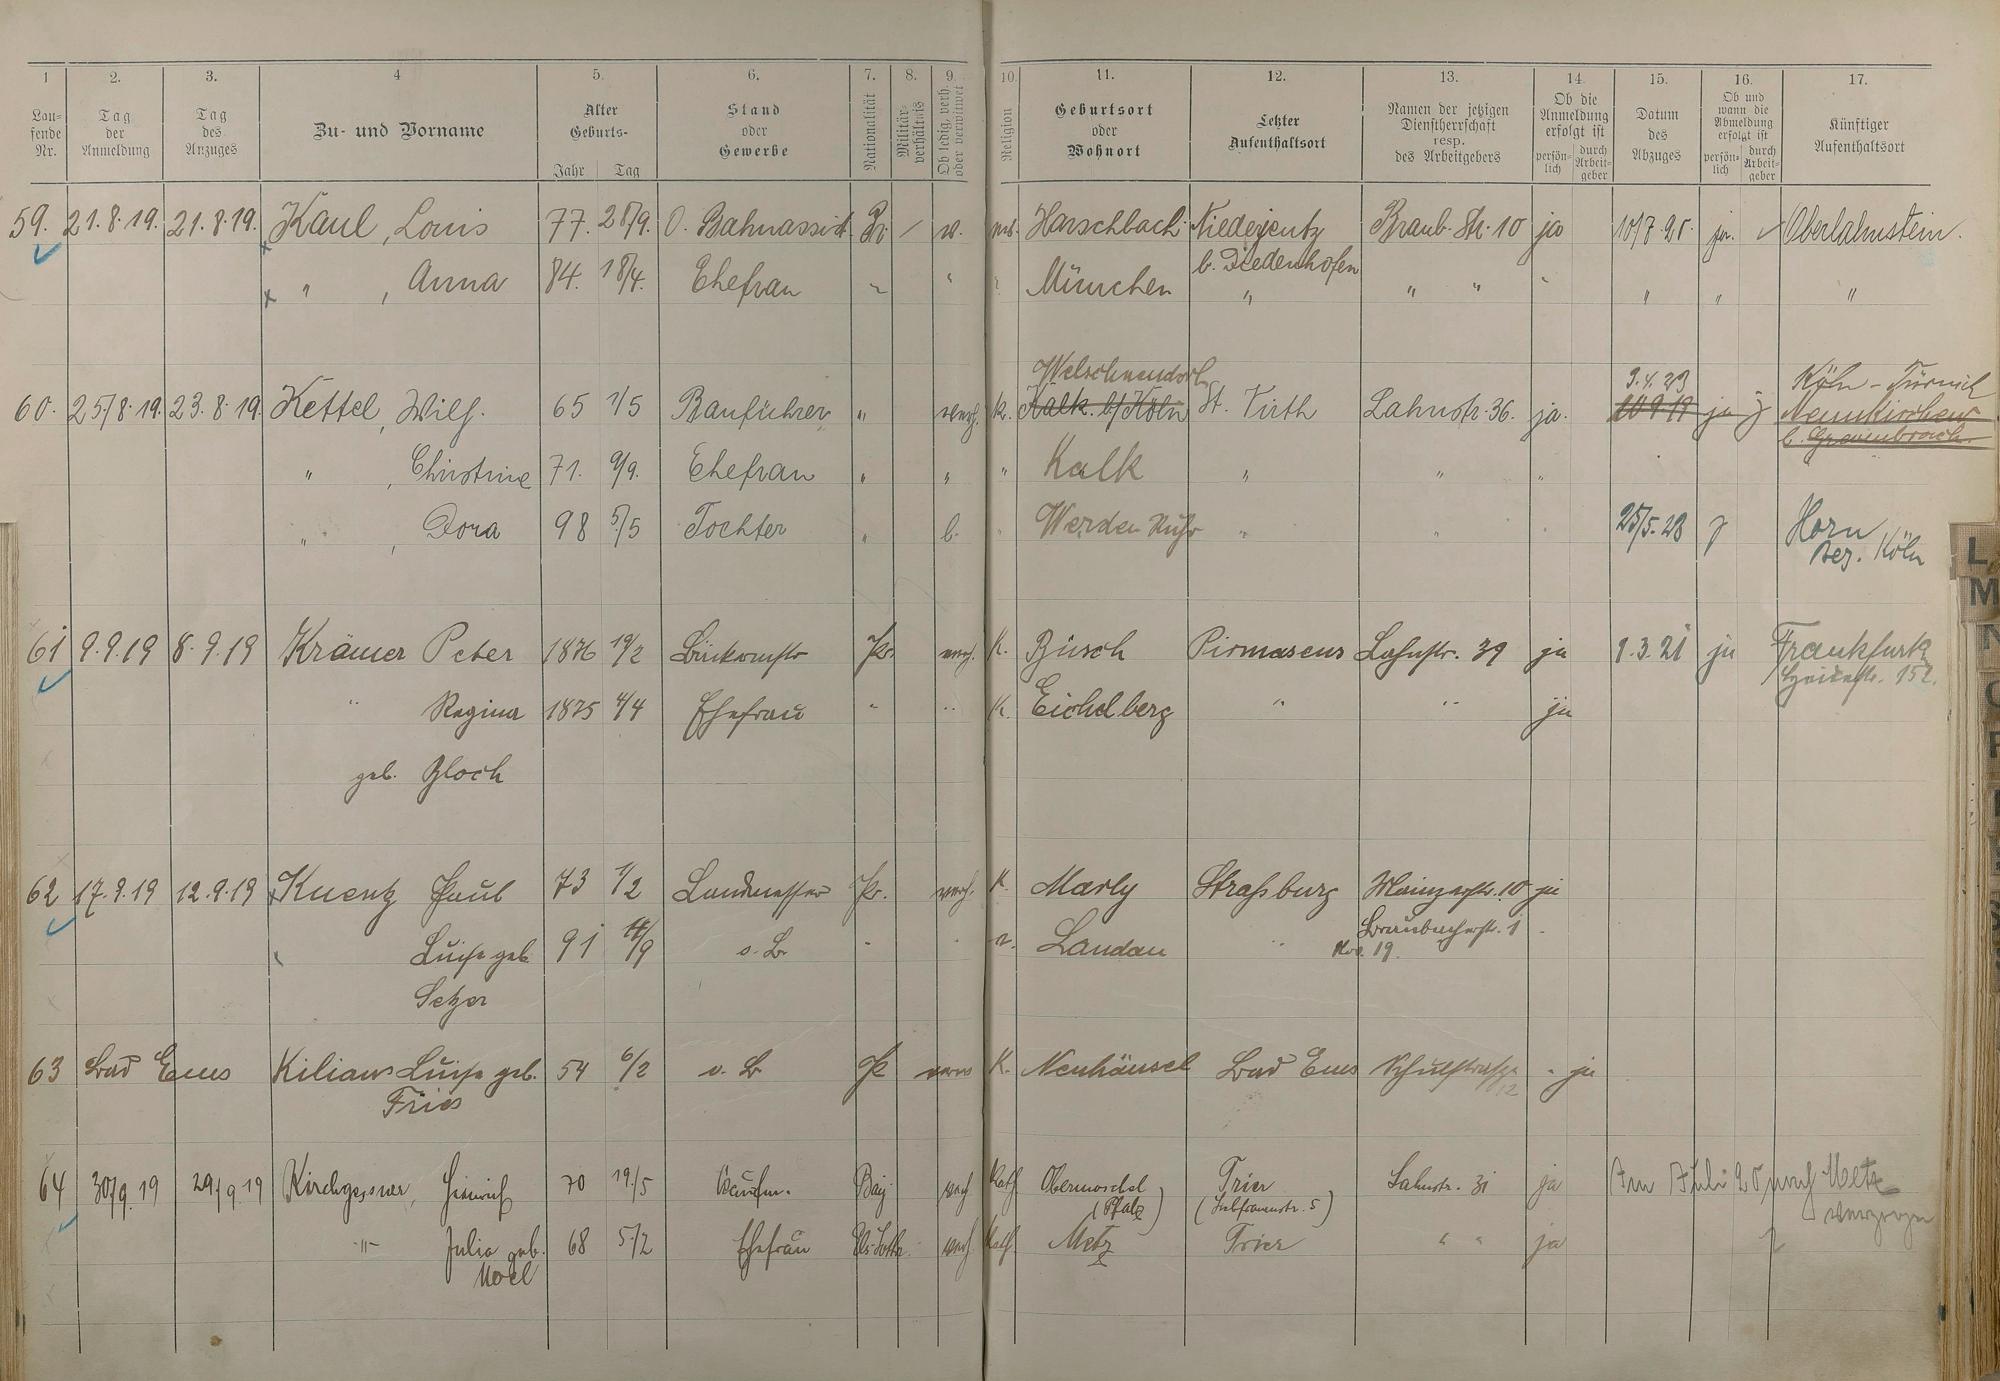 1 2. 3. 4 5. 6. 7. 8. 9. 10. 11. 12. 13. 14. 15. 16. 17.
Lau-
fende
Nr.
Tag
der
Anmeldung
Tag
des
Anzuges
Zu- und Vorname
Alter
Geburts-
Jahr Tag
Stand
oder
Gewerbe
Nationalität
Militär-
verhältnis
Ob ledig, verh.
oder verwitwet
Religion
Geburtsort
oder
Wohnort
Letzter
Aufenthaltsort
Namen der jetzigen
Dienstherrschaft
resp.
des Arbeitgebers
Ob die
Anmeldung
erfolgt ist
persön-
lich
durch
Arbeit-
geber
Datum
des
Abzuges
Ob und
wann die
Abmeldung
erfolgt ist
persön-
lich
durch
Arbeit-
geber
Künftiger
Aufenthaltsort
59. 21.8.19. 21.8.19. Kaul, Louis 77. 28/9. O. Bahnassist. Pr. / v. Harschbach Niederjeutz Braub. Str. 10 ja 10/7.20. ja. Oberlahnstein.
b. Diedenhofen
" , Anna 84. 18/4. Ehefrau " " München " " " " " " "
Welschneudorf 3.4.23 Köln-Türnich
60. 25/8.19. 23.8.19. Kettel, Wilh. 65 1/5 Bauführer " verh. k. Kalk b/Köln St. Vith Lahnstr. 36. ja. 10 9 19 ja j Neunkirchen
b. Grevenbroich.
" , Christine 71. 9/9. Ehefrau " " " Kalk " " "
" , Dora 98 5/5 Tochter " l. " Werden Ruhr " " 25/5.23 j Horn
Bez. Köln
61 9.9.19 8.9.19 Krämer Peter 1876 19/2 Pr. verh. k. Büsch Pirmasens Lahnstr. 39 ja 1.3.21 ja Frankfurt
152.
" Regina 1875 4/4 Ehefrau " " k. Eichelberg " " ja
geb. Bloch
62 17.9.19 12.9.19 Kuentz Paul 73 1/2 Landmesser Pr. verh. K. Marly Straßburg Mainzerstr. 10 ja
Braubacherstr. 1
" Luise geb. 91 11/9 o. B. " " Landau " Nov. 19.
Setzer
63 Bad Ems Kilian Luise geb. 54 6/2 o. B. Pr. K. Neuhäusel Bad Ems Schulstraße " ja
Fries 12
64 30/9.19 29/9 19 Kirchgessner, Heinrich 70 19/5 Kaufm. Bay. verh Kath. Obermoschel Trier Lahnstr. 31 ja Im Juli 20 nach Metz
(Pfalz) (Liebfrauenstr. 5) verzogen
-"- Julia geb. 68 5/2 Ehefrau Els. Lothr. verh Kath. Metz Trier " " ja
Noël
L
M
N